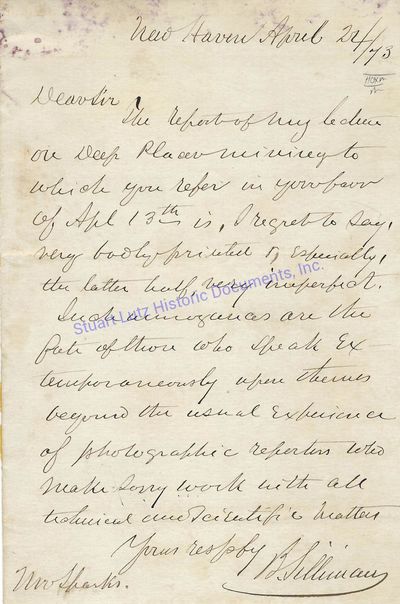 New Haven April 22/73
Dear Sir
The report of my lecture
on Deep Placer mining to
which you refer in your favr
of Apl 13th is, I regret to say,
very badly printed & especially,
the latter half, very imperfect.
Such annoyances are the
fate of those who speak Ex
temporaneously upon themes
beyond the usual Experience
of photographic reporters who
make sorry work with all
technical and Scientific matters
Yours respfy
B. Silliman
Mr Sparks.
Stuart Lutz Historic Documents, Inc.